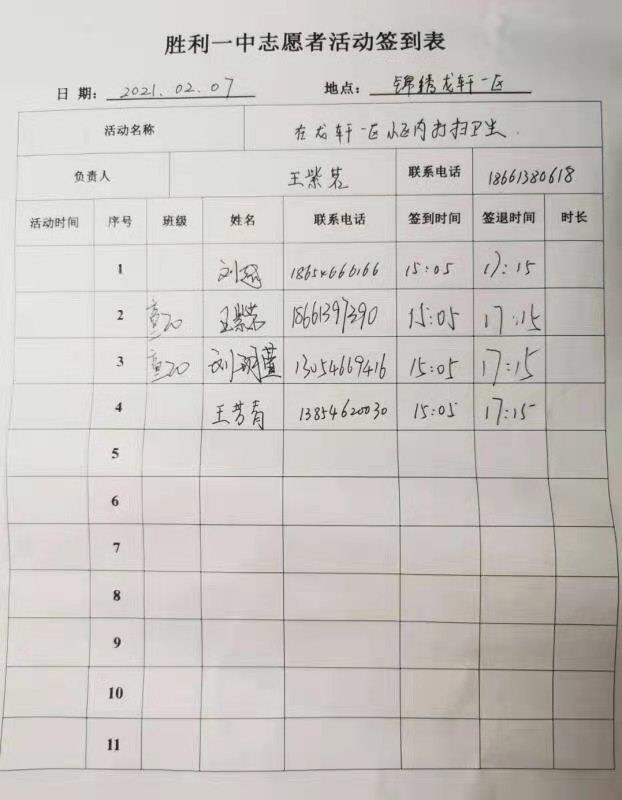 胜利一中志愿者活动签到表
日 期: 2021.02.07 地点: 锦绣龙轩一区
活动名称 在龙轩一区小区内打扫卫生.
负责人 王紫茗 联系电话 18661380618
活动时间 序号 班级 姓名 联系电话 签到时间 签退时间 时长
1 刘 18654666166 15:05 17:15
2 20 王紫茗 18661397390 15:05 17:15
3 20 刘玥萱 13054669416 15:05 17:15
4 王芳青 13854620030 15:05 17:15
5
6
7
8
9
10
11